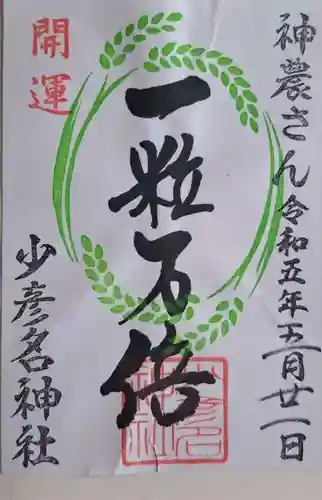 神農さん 令和五年五月廿一日
開運
一粒万倍
少彦名神社